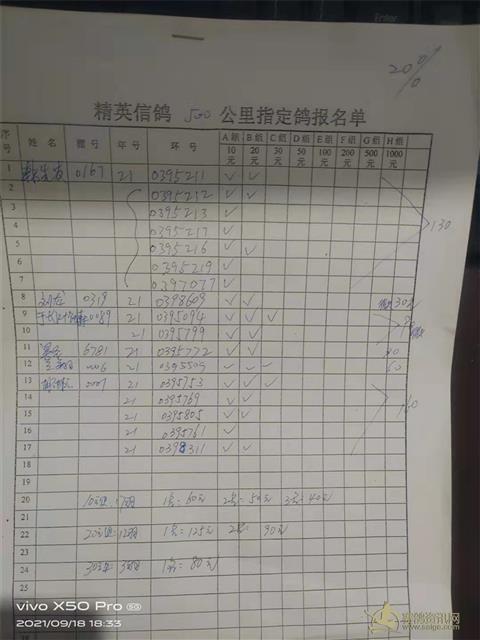 20%
精英信鸽 500 公里指定鸽报名单
序号 姓名 棚号 年号 环号 A组10元 B组20元 C组30元 D组50元 E组100元 F组200元 G组500元 H组1000元
1 0167 21 0395211 ✓ ✓
2 0395212 ✓ ✓
3 0395213 ✓
4 0395217 ✓
5 0395216 ✓ ✓
6 0395219 ✓
7 0397077 ✓
130
8 0319 21 0398609 ✓ ✓ 30元
9 0089 21 0395094 ✓ ✓ ✓
10 21 0395799 ✓ ✓
11 6781 21 0395772 ✓ ✓
12 21 0395509 ✓ ✓ ✓ 60
13 21 0395753 ✓ ✓ ✓
14 21 0395769 ✓ ✓
15 21 0395805 ✓ ✓
16 21 0395761 ✓
17 21 0398311 ✓ ✓
18
19
20 10元组:17羽 1名=60元 2名=50元 3名=40元
21
22 20元组:12羽 1名=125元 2名= 90元
23
24 30元组:3羽 1名=80元
25
vivo X50 Pro 5G
2021/09/18 18:33
赛鸽资讯网
www.saige.com